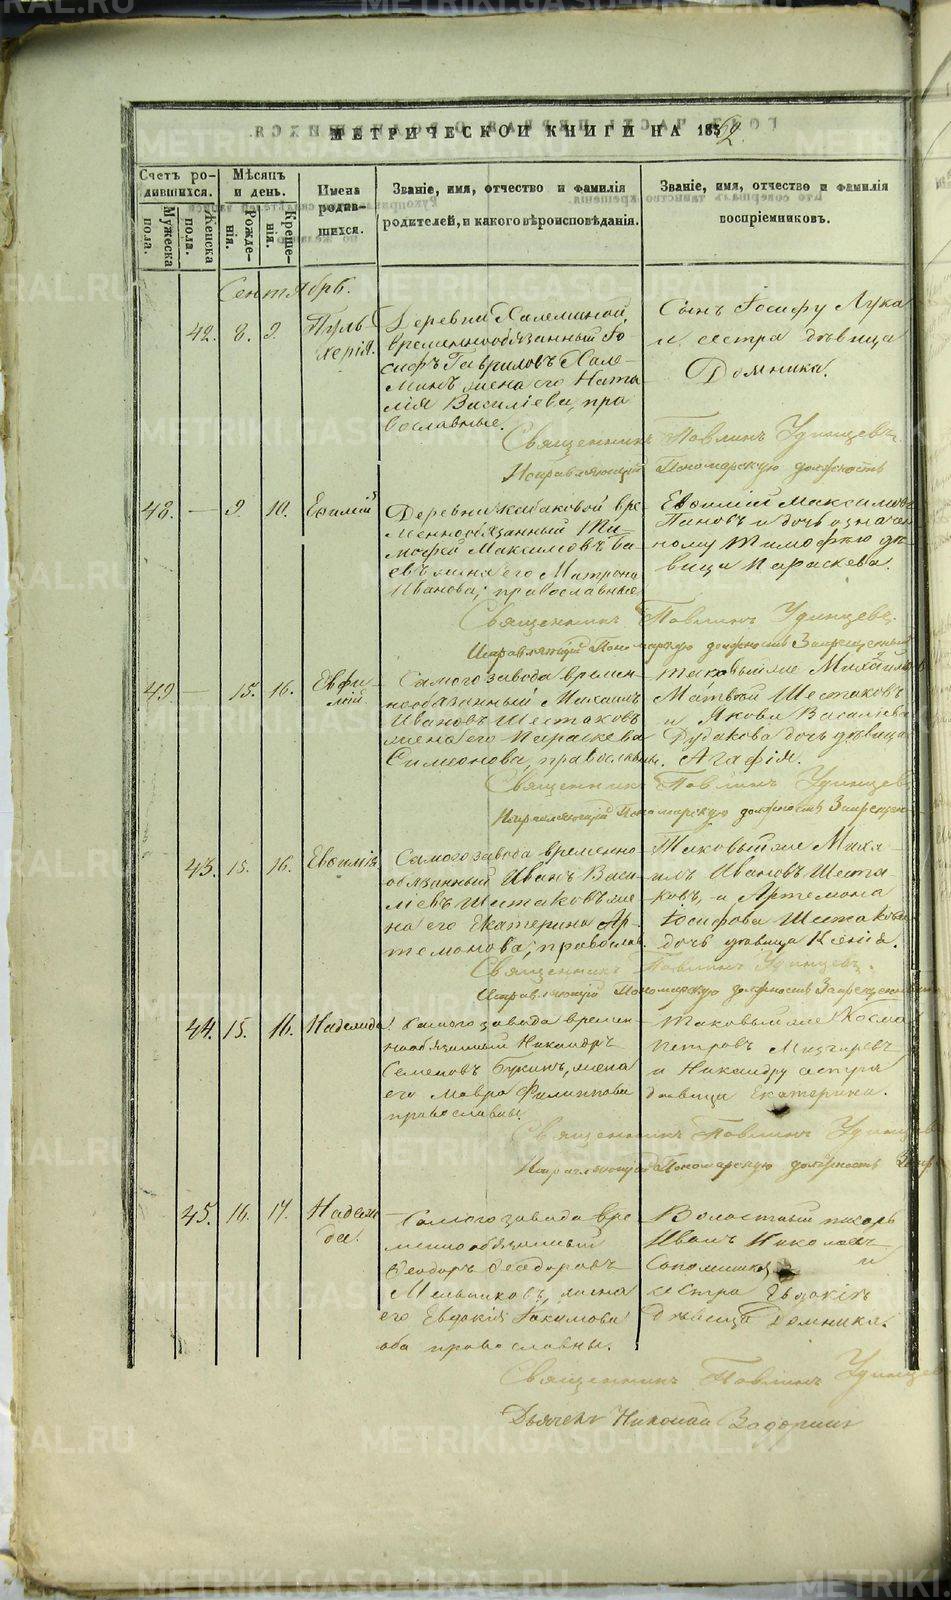 МЕТРИЧЕСКОЙ КНИГИ НА 1862.
Счетъ родившихся.
Мужеска пола.
Женска пола.
Мѣсяцъ и день.
Рожденія.
Крещенія.
Имена родившихся.
Званіе, имя, отчество и фамилія родителей, и какого вѣроисповѣданія.
Званіе, имя, отчество и фамилія воспріемниковъ.
Сентябрь.
42. 8. 9. Пульхерія.
Деревни
временнообязанный Іо-
сифъ Гавриловъ Хале-
минъ жена его Ната-
лія Василіева, пра-
вославные.
Сынъ Іосифу Лука
и сестра дѣвица
Домника.
Священникъ Павлинъ Удинцевъ
Исправляющій Пономарскую должность
48. — 9 10. Евѳимій
Деревни Кабаковой вре-
меннообязанный Ти-
мофей Максимовъ Ба-
евъ жена его Матрона
Иванова; православные
Евѳимій Максимовъ
Пановъ и дочь означен-
ному Тимофею дѣ-
вица Параскева.
Священникъ Павлинъ Удинцевъ.
Исправляющій Пономарскую должность Запрещенный
49 — 15. 16. Евфи-
мій
Самого завода времен-
нообязанный Михаилъ
Ивановъ Шестаковъ
жена его Параскева
Симеонова, православны.
таковыйже
Матвѣй Шестаковъ
и Якова Василіева
Дудакова дочь дѣвица
Агафія.
Священникъ Павлинъ Удинцевъ
Исправляющій Пономарскую должность Запрещен
43. 15. 16. Евѳимія
Самого завода временно-
обязанный Иванъ Васи-
льевъ Шестаковъ же-
на его Екатерина Ар-
темонова; православ.
Таковыйже Миха-
илъ Ивановъ Шеста-
ковъ, и Артемона
Іосифова Шестакова
дочь дѣвица Ксенія.
Священникъ Павлинъ Удинцевъ.
Исправляющій Пономарскую должность Запрещенный
44. 15. 16. Надежда.
Самого завода времен-
нообязанный Никандръ
Семеновъ Букинъ, жена
его Мавра Филиппова
православны.
Таковыйже Косма
Петровъ Мизгиревъ,
и Никандру сестра
дѣвица Екатерина.
Священникъ Павлинъ Удинцев
Исправляющій Пономарскую должность Запр
45. 16. 17. Надеж-
да.
Самого завода вре-
меннообязанный
Ѳеодоръ Ѳеодоровъ
Мельниковъ, жена
его Евдокія Іакимова
оба православны.
Волостный писарь
Иванъ Николаевъ
и
сестра Евдокіи
дѣвица Домника.
Священникъ Павлинъ Удинцев
Дьячекъ Николай Задоринъ
METRIKI.GASO-URAL.RU